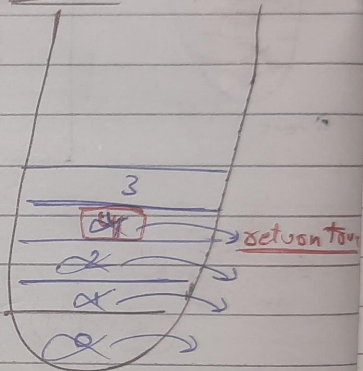 3
4
return true
2
1
0